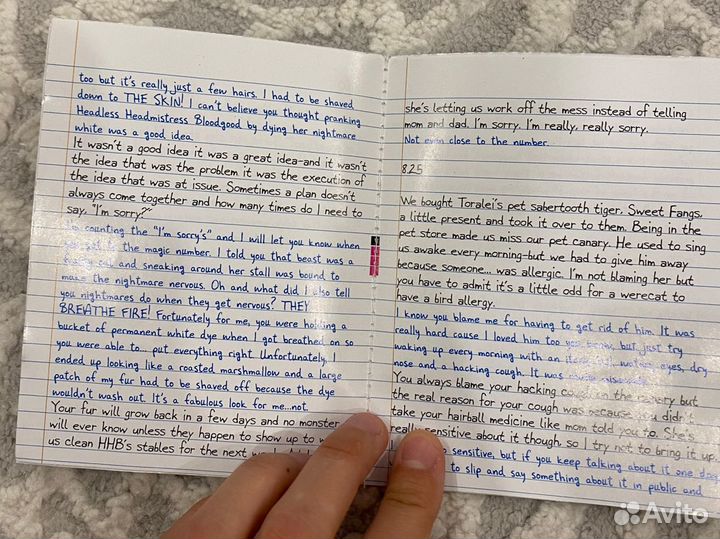 too but it's really just a few hairs. I had to be shaved
down to THE SKIN! I can't believe you thought pranking
Headless Headmistress Bloodgood by dying her nightmare
white was a good idea.
It wasn't a good idea it was a great idea-and it wasn't
the idea that was the problem it was the execution of
the idea that was at issue. Sometimes a plan doesn't
always come together and how many times do I need to
say, "I'm sorry?"
I'm counting the "I'm sorry's" and I will let you know when
you get to the magic number. I told you that beast was a
fraidy cat and sneaking around her stall was bound to
make the nightmare nervous. Oh and what did I also tell
you nightmares do when they get nervous? THEY
BREATHE FIRE! Fortunately for me, you were holding a
bucket of permanent white dye when I got breathed on so
you were able to... put everything right. Unfortunately, I
ended up looking like a roasted marshmallow and a large
patch of my fur had to be shaved off because the dye
wouldn't wash out. It's a fabulous look for me...not.
Your fur will grow back in a few days and no monster
will ever know unless they happen to show up to
us clean HHB's stables for the next
she's letting us work off the mess instead of telling
mom and dad. I'm sorry. I'm really, really sorry.
Not even close to the number.
825
We bought Toralei's pet sabertooth tiger, Sweet Fangs,
a little present and took it over to them. Being in the
pet store made us miss our pet canary. He used to sing
us awake every morning-but we had to give him away
because someone... was allergic. I'm not blaming her but
you have to admit it's a little odd for a werecat to
have a bird allergy.
I know you blame me for having to get rid of him. It was
really hard cause I loved him too you know, but just try
waking up every morning with an watery eyes, dry
nose and a hacking cough. It was
You always blame your hacking cough on the canary but
the real reason for your cough was because you didn't
take your hairball medicine like mom told you to. She's
really sensitive about it though so I try not to bring it up.
sensitive, but if you keep talking about it one day
to slip and say something about it in public and
Avito